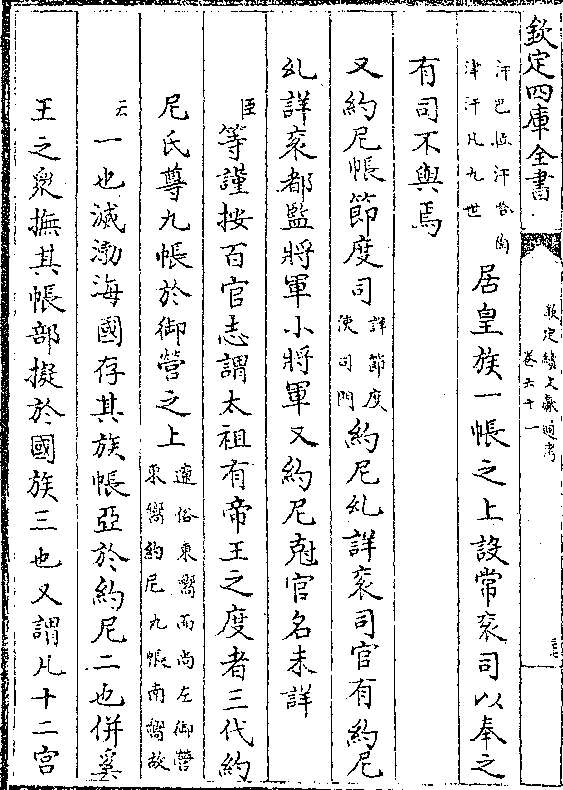 欽定四庫全書
欽定續文獻通考
卷六十一
汗巴拉汗答剌
津汗凡九世
居皇族一帳之上設常袞司以奉之
有司不與焉
又約尼帳節度司
詳節度
使司門
約尼乣詳袞司官有約尼
乣詳袞都監將軍小將軍又約尼尅官名未詳
臣
等謹按百官志謂太祖有帝王之度者三代約
尼氏尊九帳於御營之上
遼俗東嚮而尚左御營
東嚮約尼九帳南嚮故
云
一也滅渤海國存其族帳亞於約尼二也併奚
王之衆撫其帳部擬於國族三也又謂凡十二宮